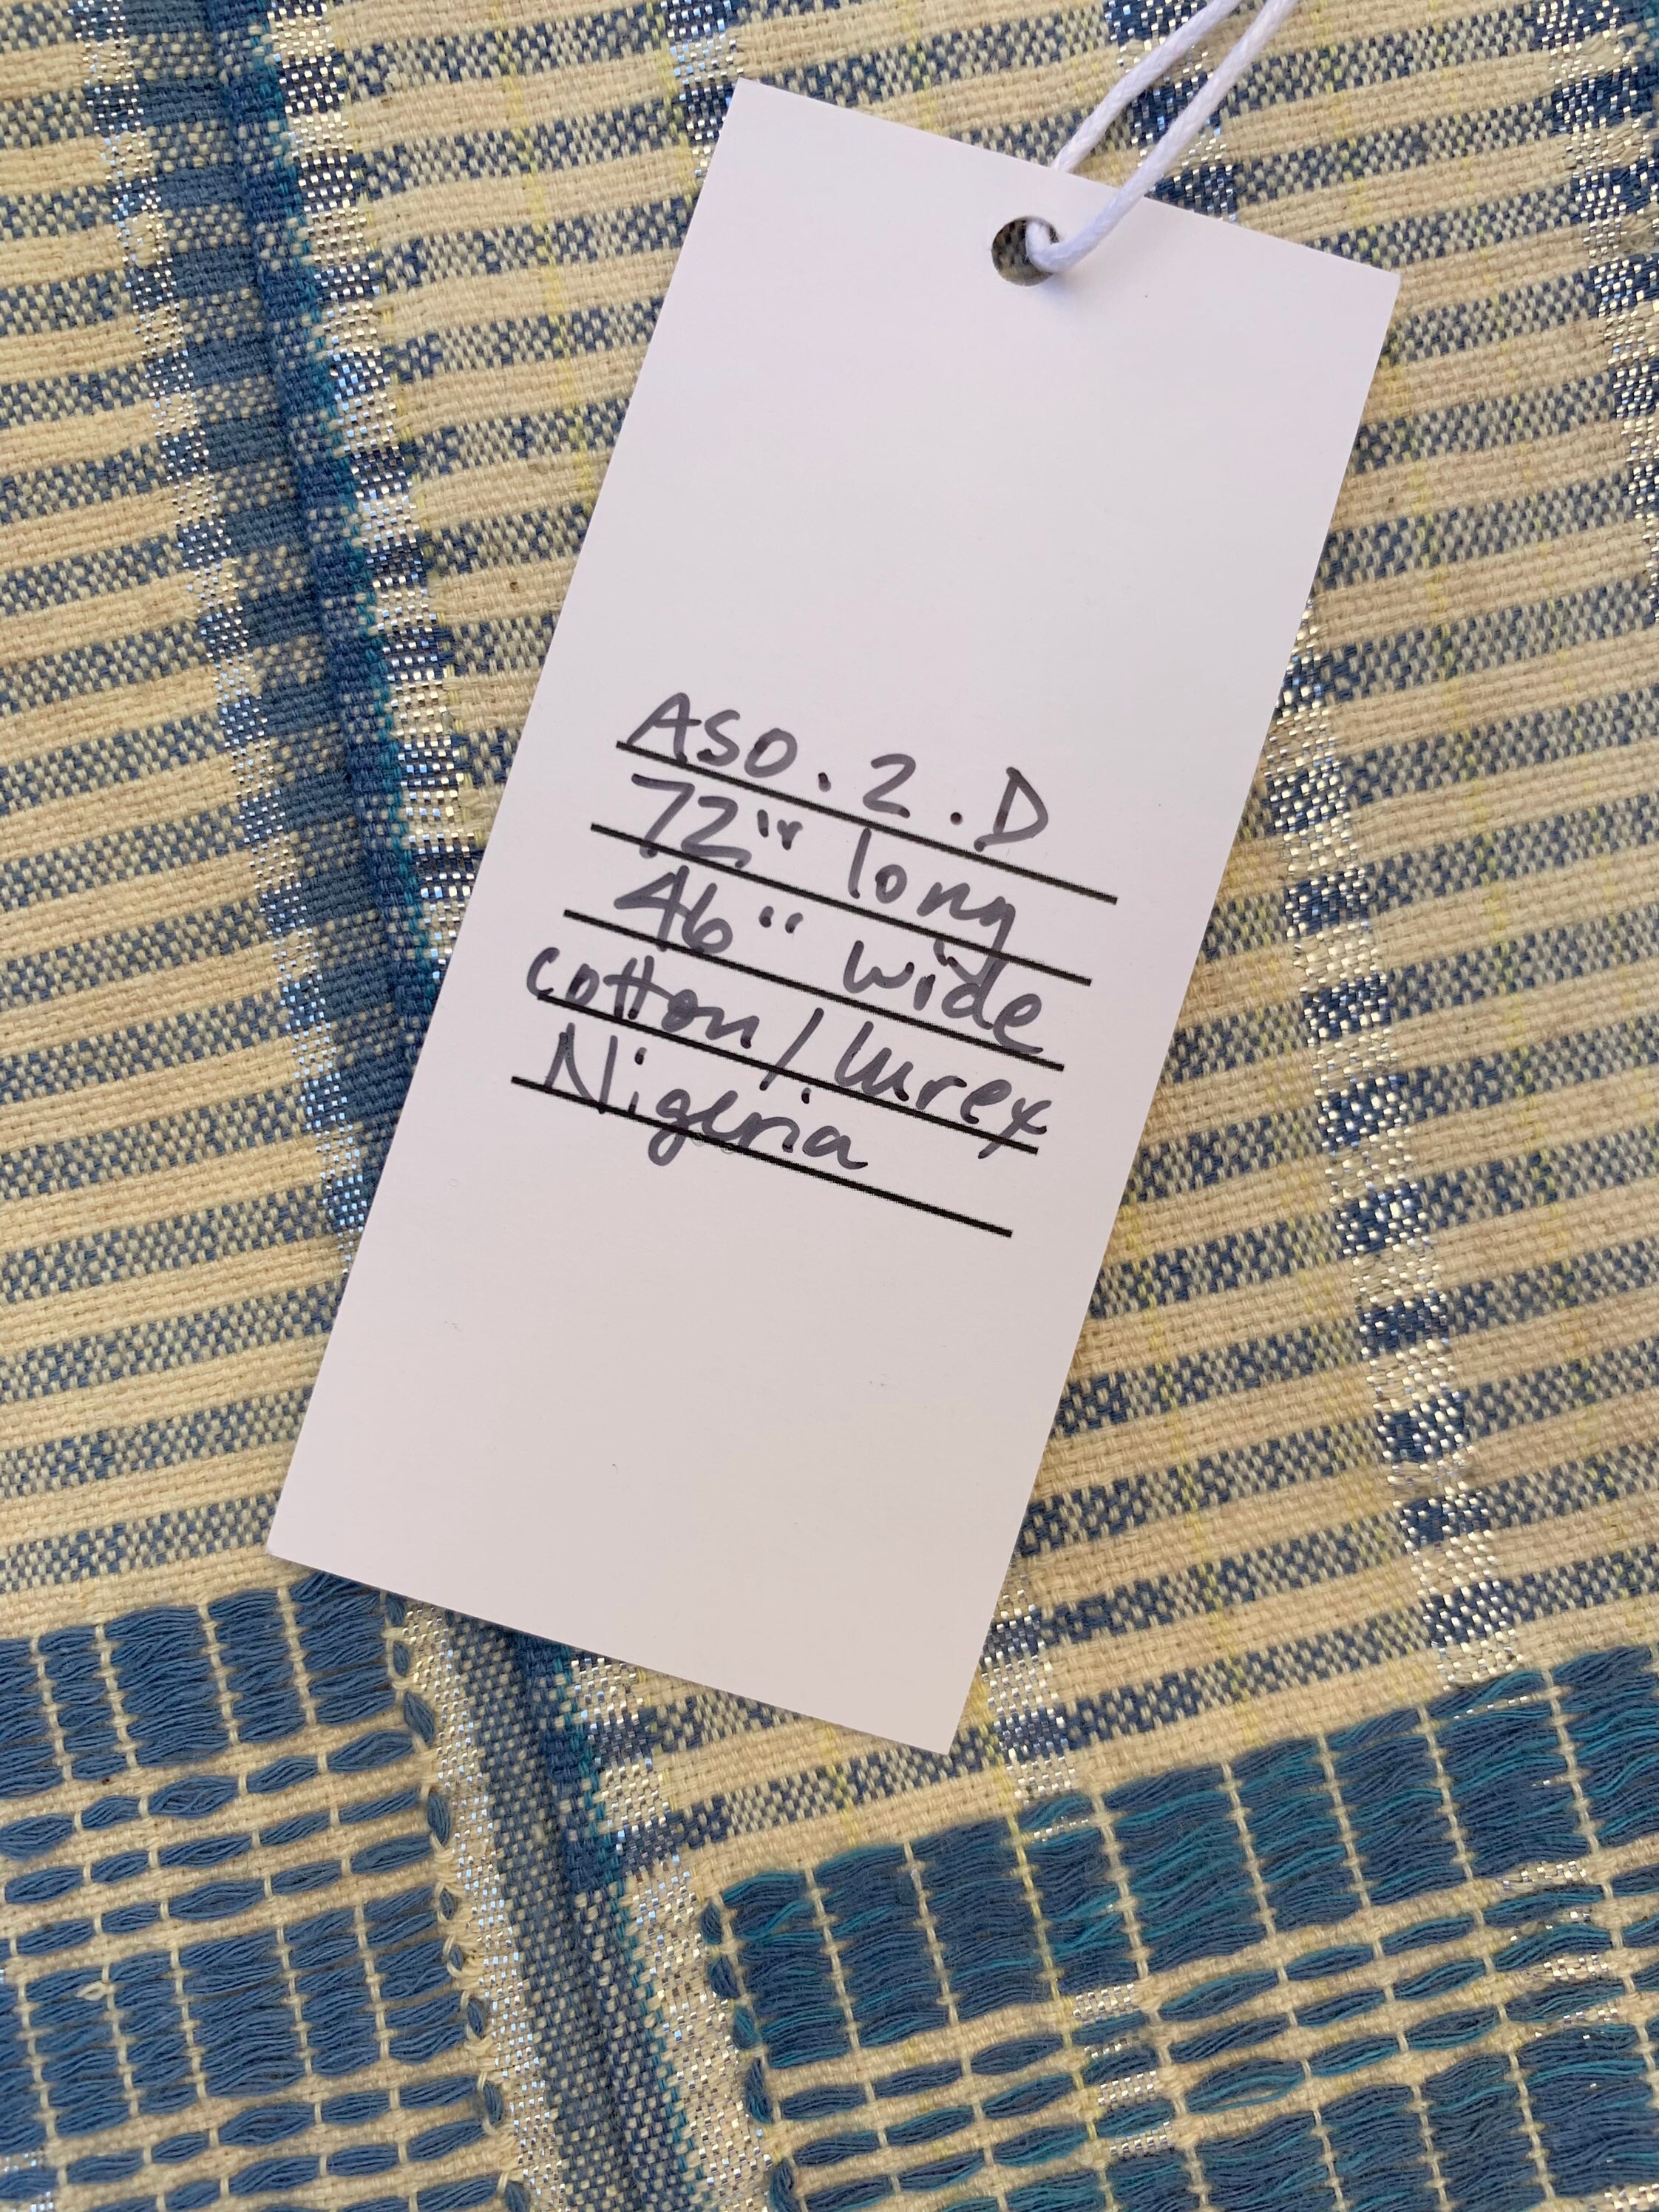 ASO.2.D
72" long
46" wide
cotton/lurex
Nigeria